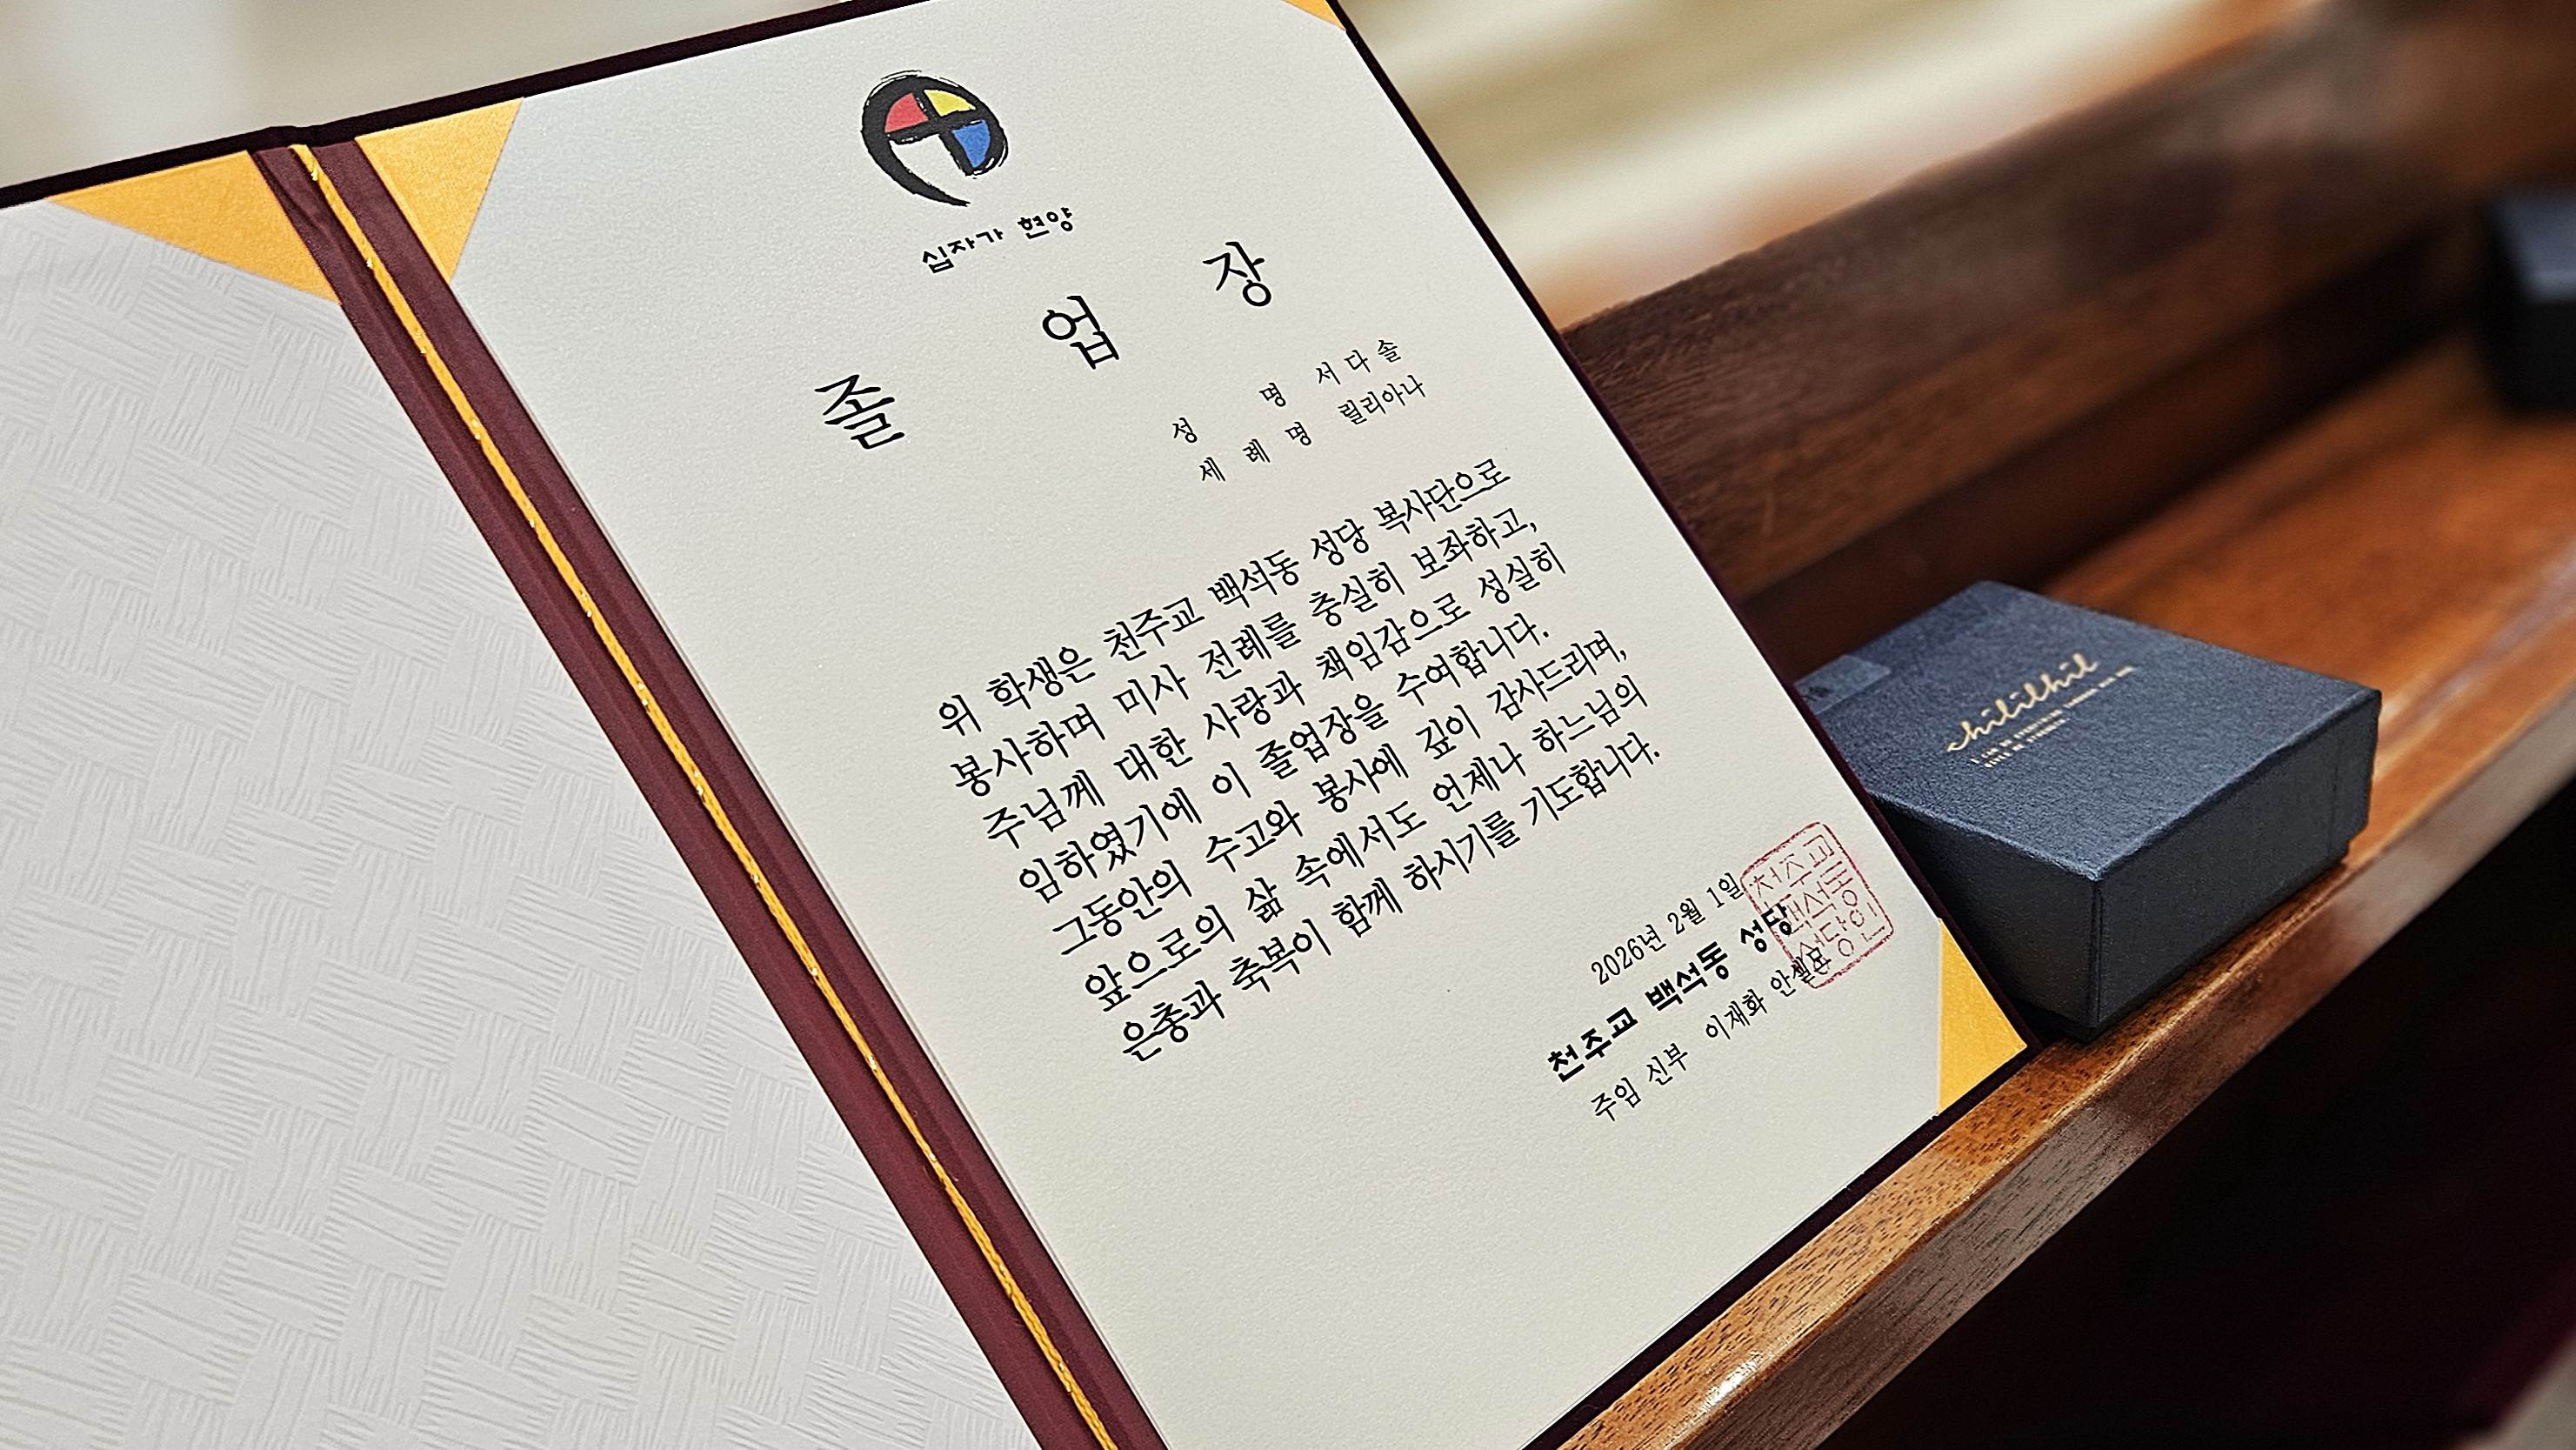 십자가 현양
졸 업 장
성 명 서다솔
세 례 명 릴리아나
위 학생은 천주교 백석동 성당 복사단으로
봉사하며 미사 전례를 충실히 보좌하고,
주님께 대한 사랑과 책임감으로 성실히
임하였기에 이 졸업장을 수여합니다.
그동안의 수고와 봉사에 깊이 감사드리며,
앞으로의 삶 속에서도 언제나 하느님의
은총과 축복이 함께 하시기를 기도합니다.
2026년 2월 1일
천주교 백석동 성당
주임 신부 이재화 안셀모
천주교
백석동
성당인
chililhil